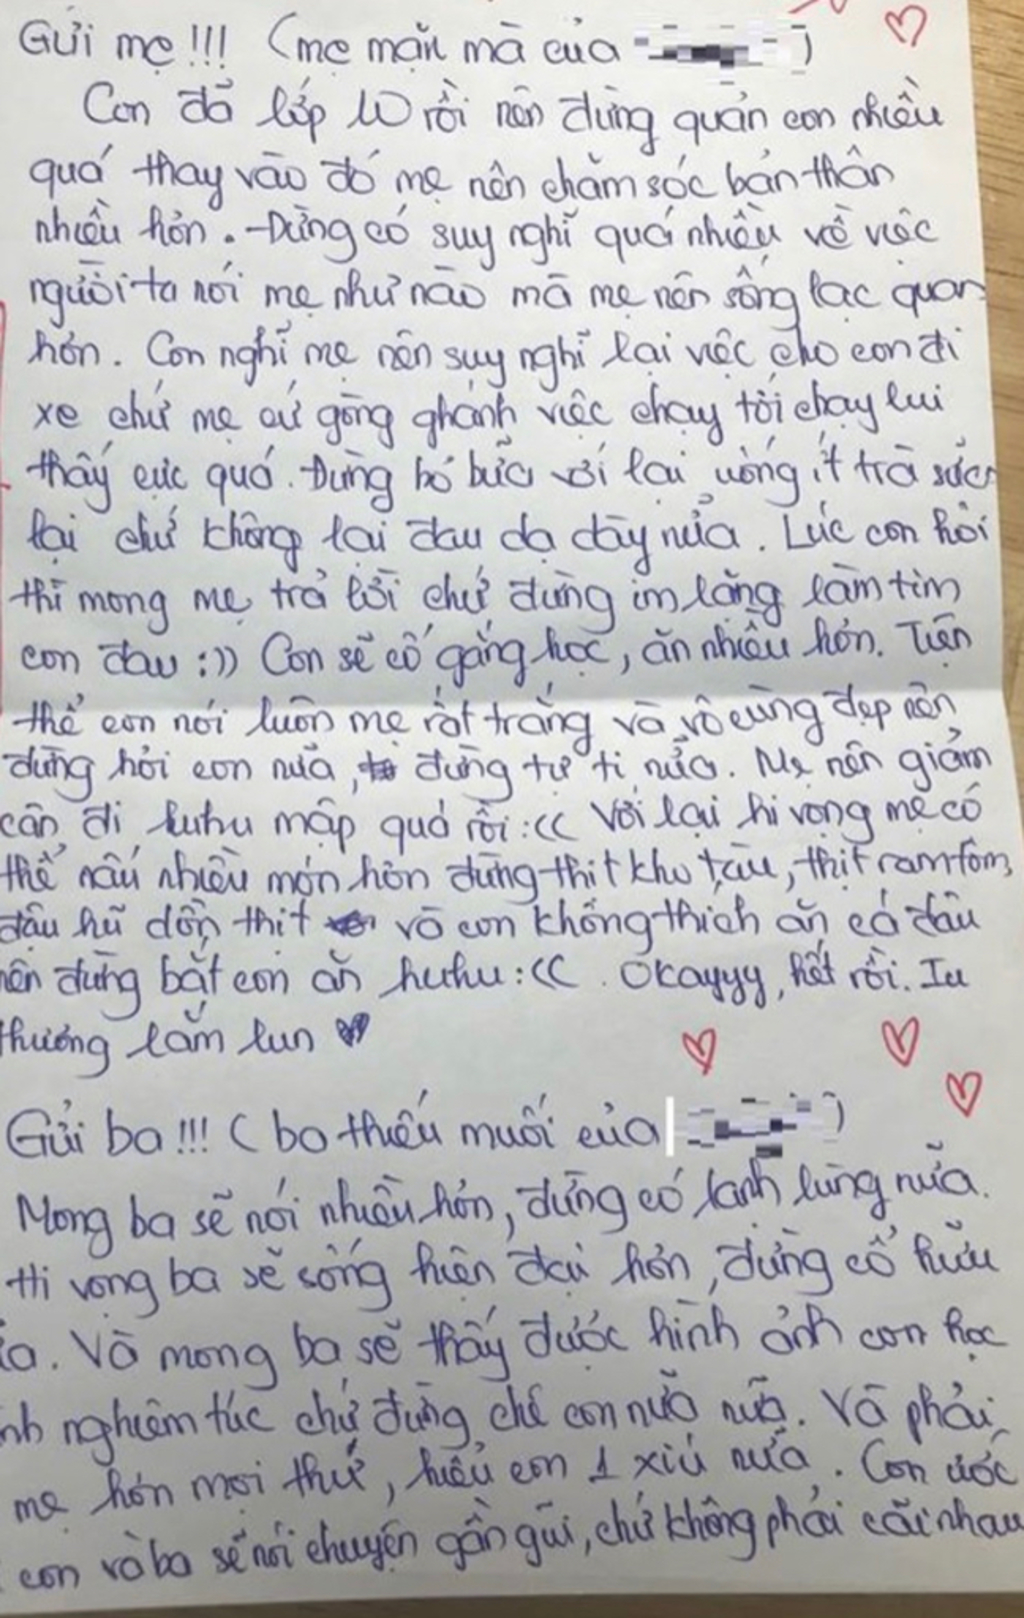 Gửi mẹ!!! (mẹ mặn mà của )
Con đã lớp 10 rồi nên đừng quản con nhiều
quá thay vào đó mẹ nên chăm sóc bản thân
nhiều hơn. Đừng có suy nghĩ quá nhiều về việc
người ta nói mẹ như nào mà mẹ nên sống lạc quan
hơn. Con nghĩ mẹ nên suy nghĩ lại việc cho con đi
xe chứ mẹ cứ gồng ghánh việc chạy tới chạy lui
thấy cực quá. Đừng bỏ bữa với lại uống ít trà sữa
lại chứ không lại đau dạ dày nữa. Lúc con hỏi
thì mong mẹ trả lời chứ đừng im lặng làm tim
con đau :)) Con sẽ cố gắng học, ăn nhiều hơn. Tiện
thể con nói luôn mẹ rất trắng và vô cùng đẹp nên
đừng hỏi con nữa, đừng tự ti nữa. Mẹ nên giảm
cân đi huhu mập quá rồi :(( Với lại hi vọng mẹ có
thể nấu nhiều món hơn đừng thịt kho tàu, thịt ram tôm,
đậu hũ dồn thịt và con không thích ăn cá đâu
nên đừng bắt con ăn huhu :((. Okayyy, hết rồi. Iu
thương lắm lun
Gửi ba!!! (ba thiếu muối của )
Mong ba sẽ nói nhiều hơn, đừng có lạnh lùng nữa.
Hi vọng ba sẽ sống hiện đại hơn, đừng cổ hữu
. Và mong ba sẽ thấy được hình ảnh con học
nghiêm túc chứ đừng chê con nữa nữa. Và phải
mẹ hơn mọi thứ, hiểu con 1 xíu nữa. Con ước
con và ba sẽ nói chuyện gần gũi, chứ không phải cãi nhau